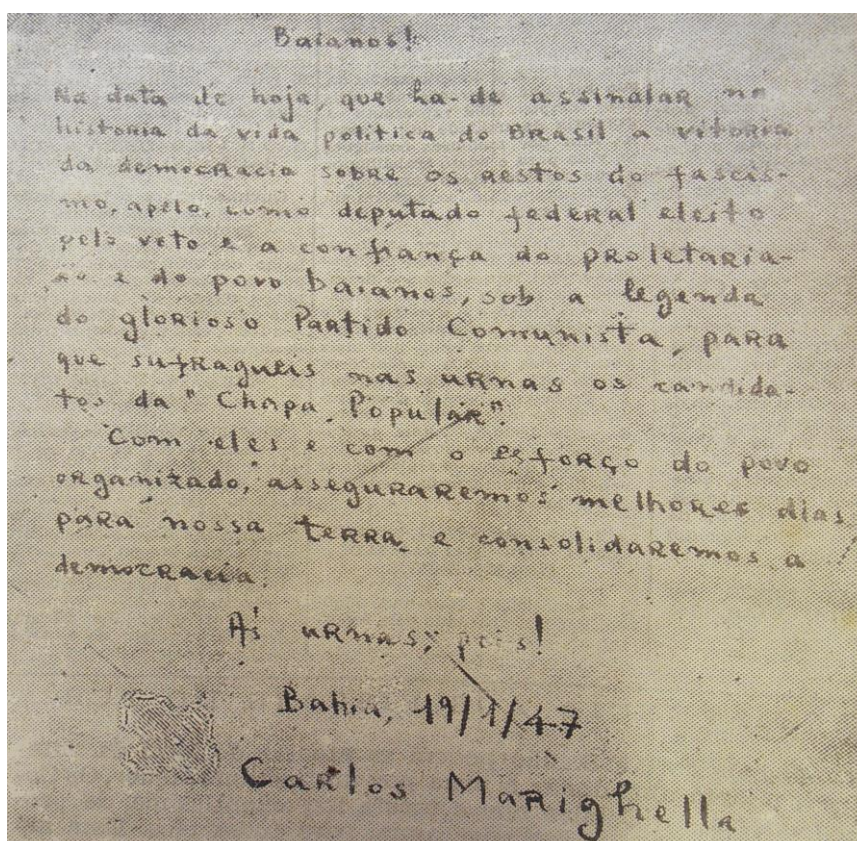 Baianos!
Na data de hoje, que ha-de assinalar na
historia da vida politica do Brasil a vitoria
da democracia sobre os restos do fascis-
mo, apelo, como deputado federal eleito
pelo voto e a confiança do proletaria-
do e do povo baianos, sob a legenda
do glorioso Partido Comunista, para
que sufragueis nas urnas os candida-
tos da "Chapa Popular".
Com eles e com o esforço do povo
organizado, asseguraremos melhores dias
para nossa terra e consolidaremos a
democracia.
Ás urnas, pois!
Bahia, 19/1/47
Carlos Marighella